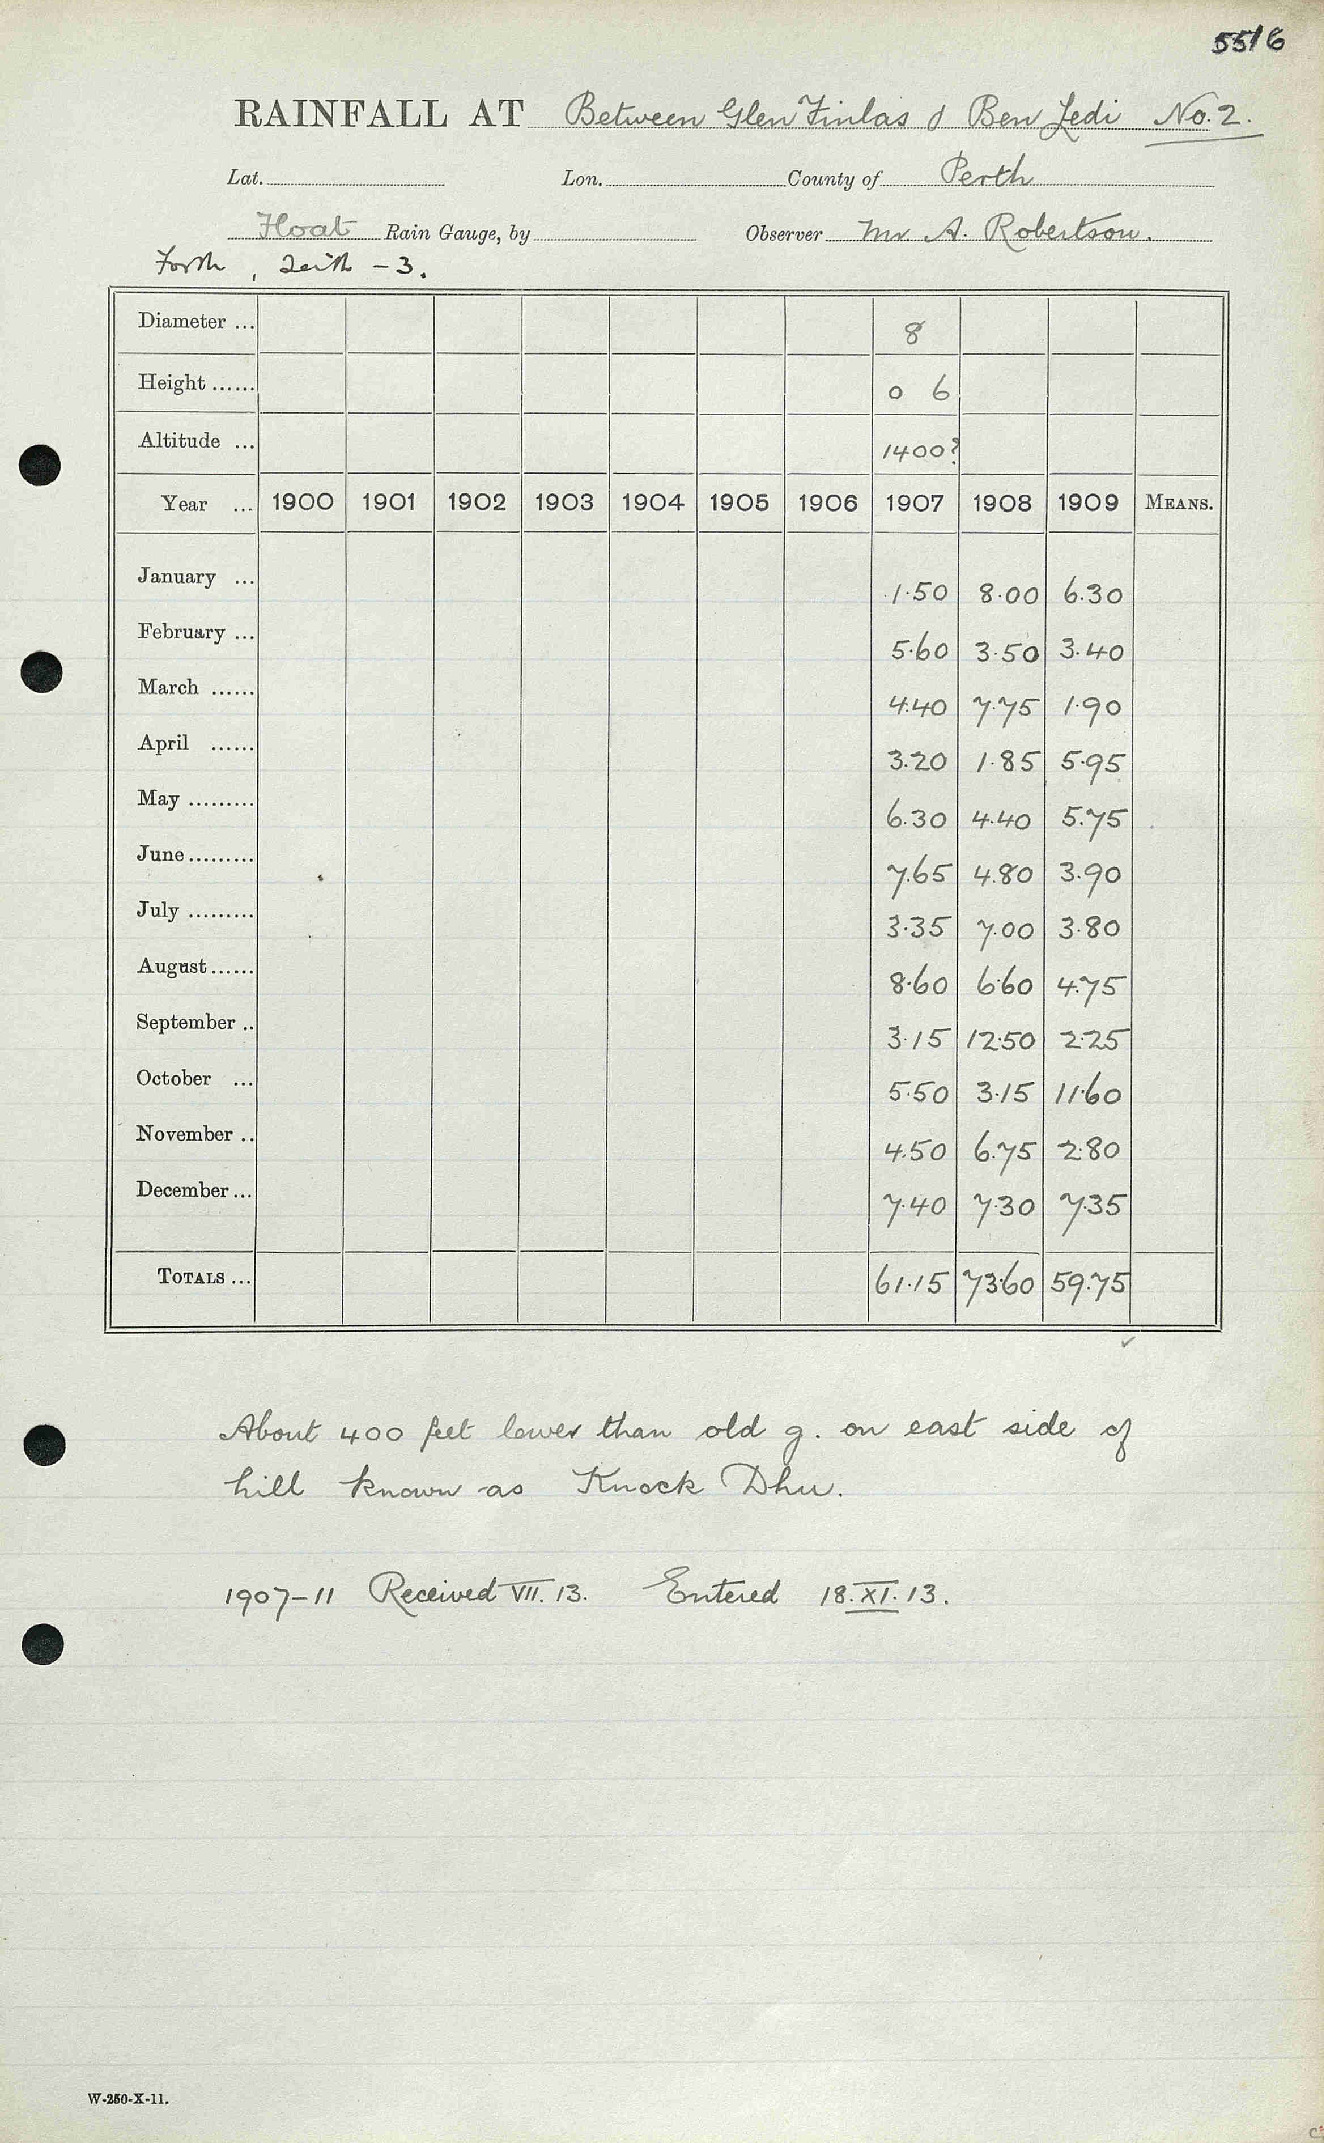 5516
RAINFALL AT Between Glen Finlas & Ben Ledi No. 2.
Lat. Lon. County of Perth
Float Rain Gauge, by Observer Mr A. Robertson.
Forth, Teith - 3.
Diameter ... 8
Height ...... 0 6
Altitude ... 1400?
Year ... 1900 1901 1902 1903 1904 1905 1906 1907 1908 1909 MEANS.
January ... 1.50 8.00 6.30
February ... 5.60 3.50 3.40
March ...... 4.40 7.75 1.90
April ...... 3.20 1.85 5.95
May ......... 6.30 4.40 5.75
June ......... 7.65 4.80 3.90
July ......... 3.35 7.00 3.80
August ...... 8.60 6.60 4.75
September .. 3.15 12.50 2.25
October ... 5.50 3.15 11.60
November .. 4.50 6.75 2.80
December ... 7.40 7.30 7.35
TOTALS ... 61.15 73.60 59.75
About 400 feet lower than old g. on east side of
hill known as Knock Dhu.
1907-11 Received VII. 13. Entered 18.XI.13.
W-250-X-11.